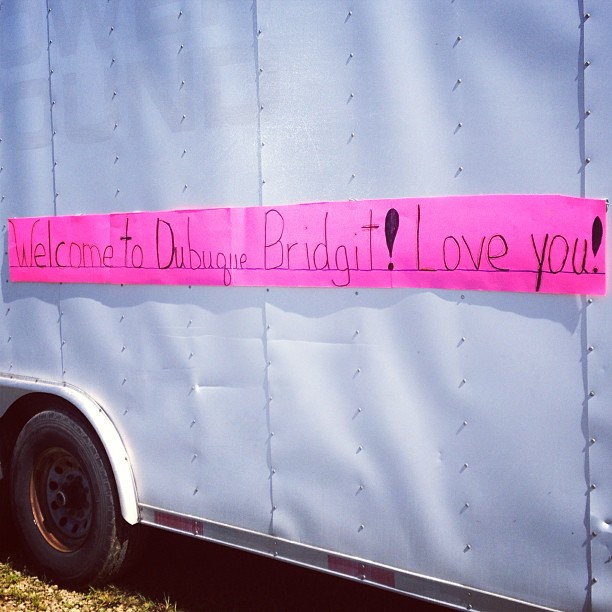 Welcome to Dubuque Bridgit! Love you!